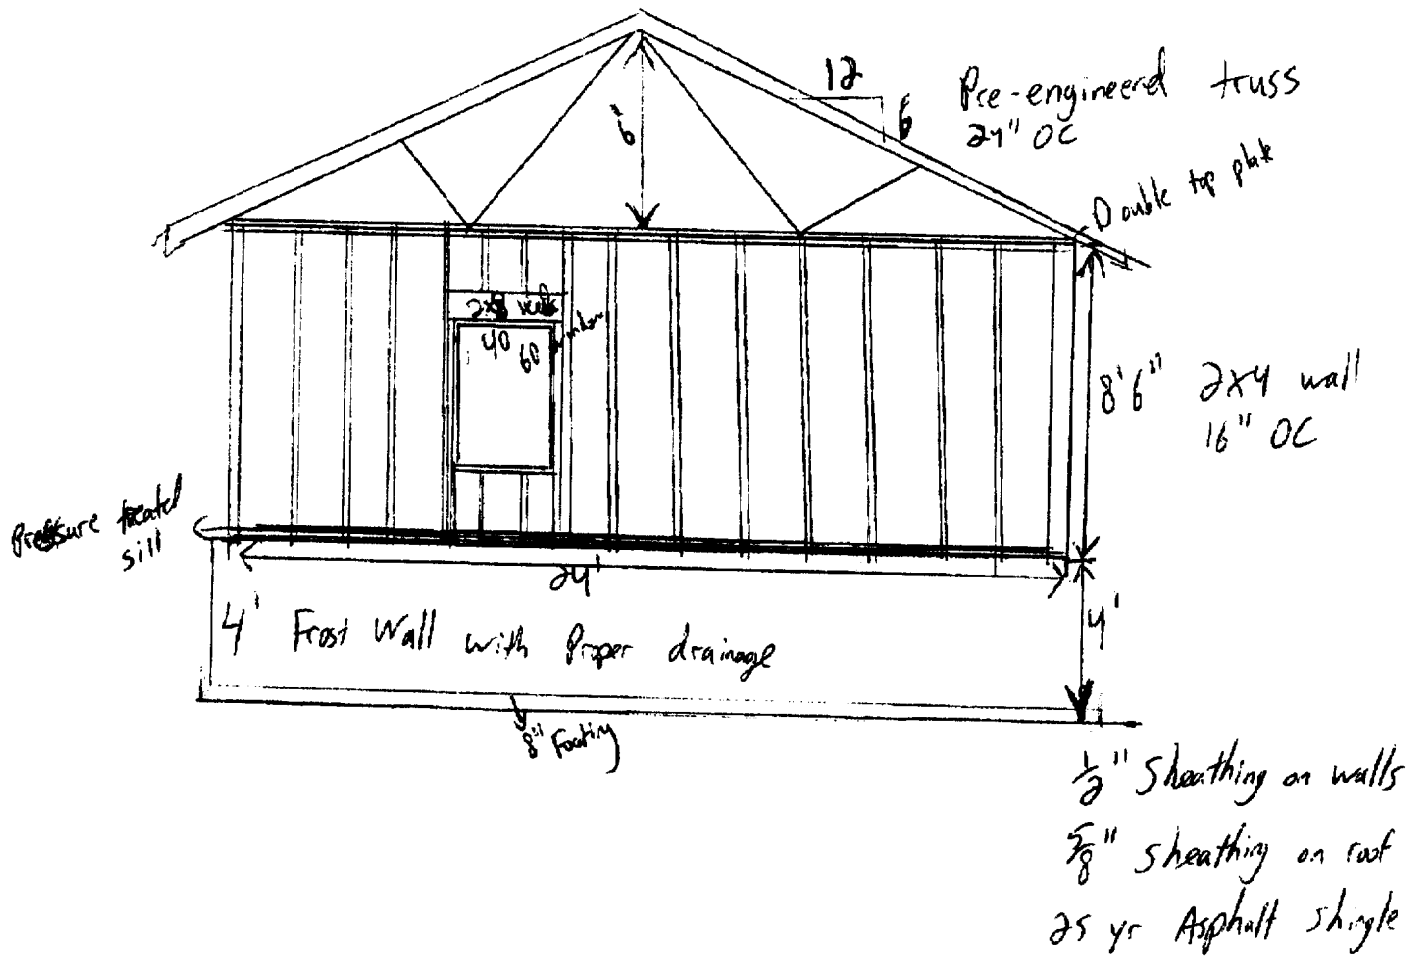 12
6
Pre-engineered truss
24" OC
6"
Double top plate
2x8
40
60
8'6"
2x4 wall
16" OC
Pressure treated
sill
24'
4' Frost Wall with Proper drainage
4'
8" Footing
1/2" Sheathing on walls
5/8" sheathing on roof
25 yr Asphalt shingle